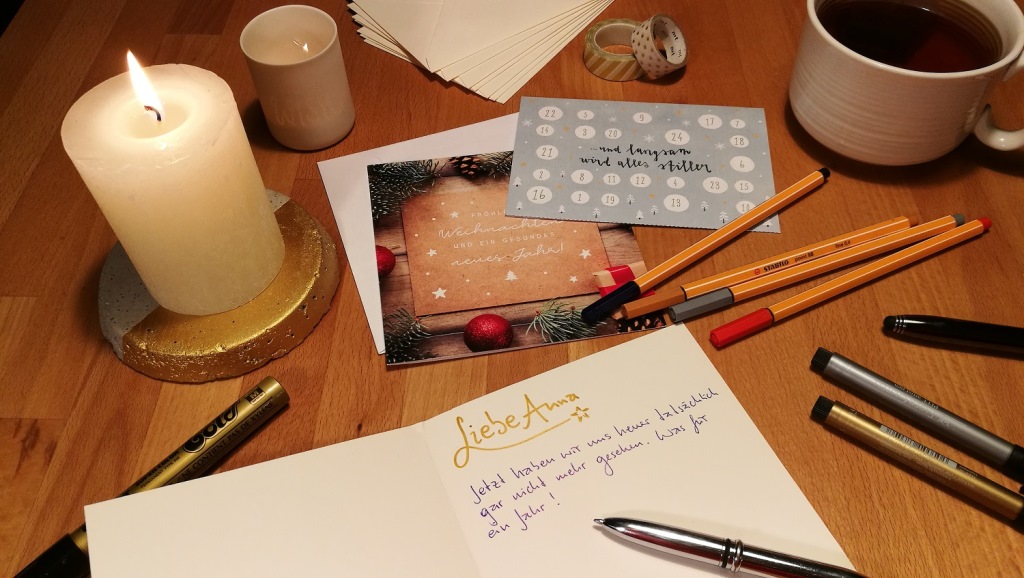 22
5
9
17
7
16
3
20
24
21
...und langsam
wird alles stiller
6
18
28
11
12
4
23
15
26
1
19
13
10
FRÖHLICHE
Weihnachten
UND EIN GESUNDES
neues Jahr!
STABILO point 88
Gold
Liebe Anna
Jetzt haben wir uns heuer tatsächlich
gar nicht mehr gesehen. Was für
ein Jahr!